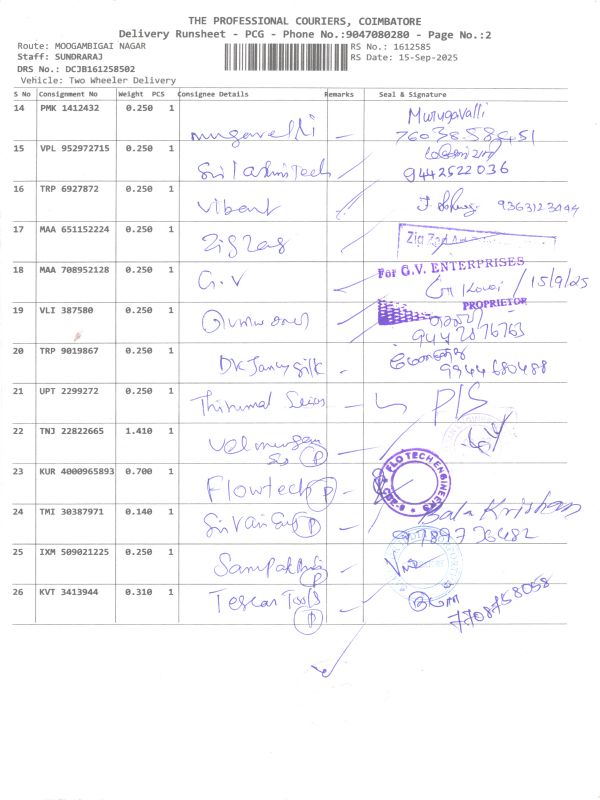 THE PROFESSIONAL COURIERS, COIMBATORE
Delivery Runsheet - PCG - Phone No.:9047080280 - Page No.:2
Route: MOOGAMBIGAI NAGAR RS No.: 1612585
Staff: SUNDRARAJ RS Date: 15-Sep-2025
DRS No.: DCJB161258502
Vehicle: Two Wheeler Delivery
S No Consignment No Weight PCS Consignee Details Remarks Seal & Signature
14 PMK 1412432 0.250 1 Murugavalli
76038.58451
15 VPL 952972715 0.250 1 Sri Lakshmi Tech
9442522036
16 TRP 6927872 0.250 1 Vibant 9363123444
17 MAA 651152224 0.250 1 Zig Zag Zig Zag
18 MAA 708952128 0.250 1 G.V For G.V. ENTERPRISES
15/9/25
PROPRIETOR
19 VLI 387580 0.250 1
9442076763
20 TRP 9019867 0.250 1 DK Jancy Silk
9944680488
21 UPT 2299272 0.250 1 Thirumal
22 TNJ 22822665 1.410 1 Velmurgan
P
23 KUR 4000965893 0.700 1 Flowtech P FLOTECH ENGINEERS
24 TMI 30387971 0.140 1 P Bala Krishnan
9789726482
25 IXM 509021225 0.250 1 P
26 KVT 3413944 0.310 1 Tescan Tools
P
7708758058